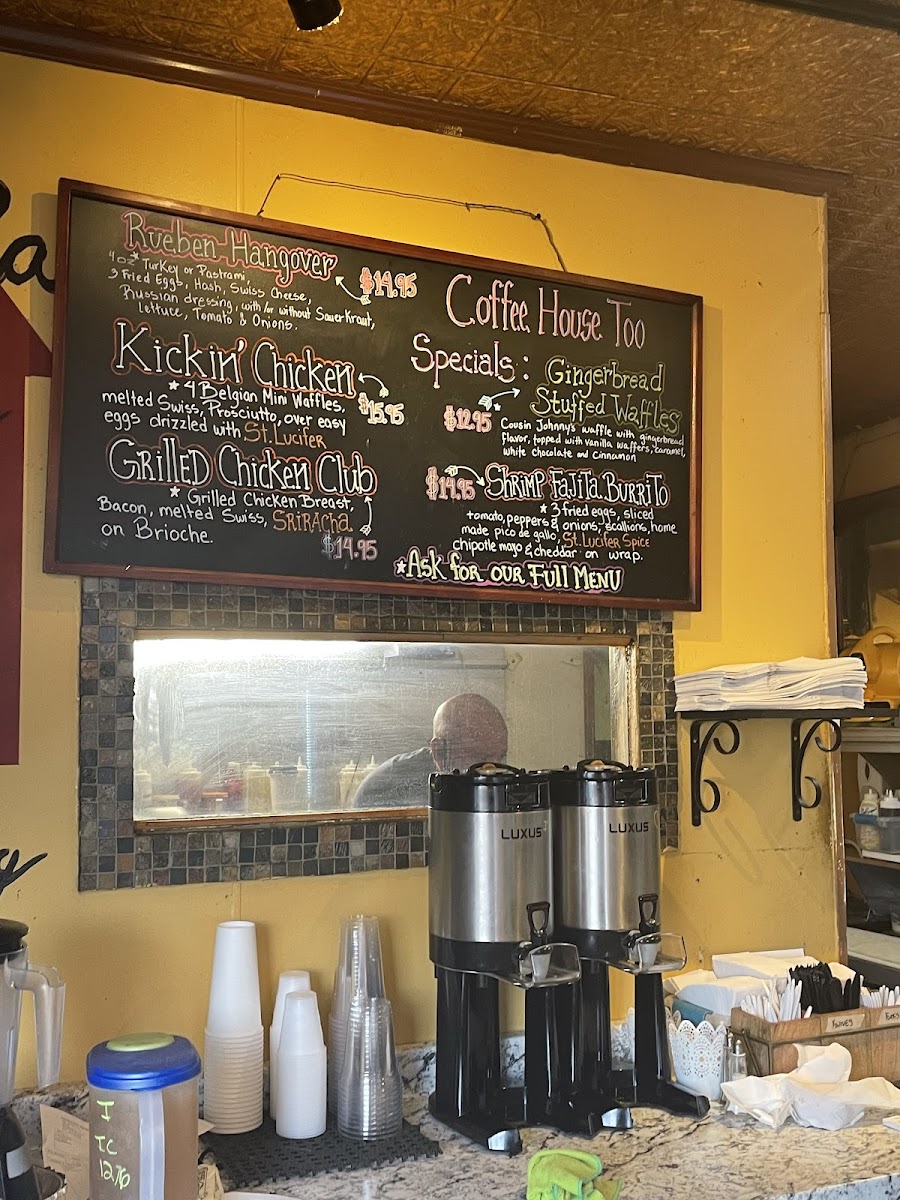 a
Rueben Hangover
$14.95
4oz* Turkey or Pastrami,
3 Fried Eggs, Hash, Swiss Cheese,
Russian dressing, with/or without SauerKraut,
Lettuce, Tomato & Onions.
Kickin' Chicken
* 4 Belgian Mini Waffles,
$15.95
melted Swiss, Prosciutto, over easy
eggs drizzled with St. Lucifer
Grilled Chicken Club
* Grilled Chicken Breast,
Bacon, melted Swiss, SRIRACHA
on Brioche.
$14.95
Coffee House Too
Specials:
Gingerbread
Stuffed Waffles
$12.95
Cousin Johnny's waffle with gingerbread
flavor, topped with vanilla waffers, caramel,
white chocolate and cinnamon
$14.95
Shrimp Fajita Burrito
* 3 fried eggs, sliced
tomato, peppers & onions, scallions, home
made pico de gallo, St. Lucifer Spice
chipotle mayo & cheddar on wrap.
*Ask for our Full Menu
LUXUS
LUXUS
KNIVES
I
TC
12/16